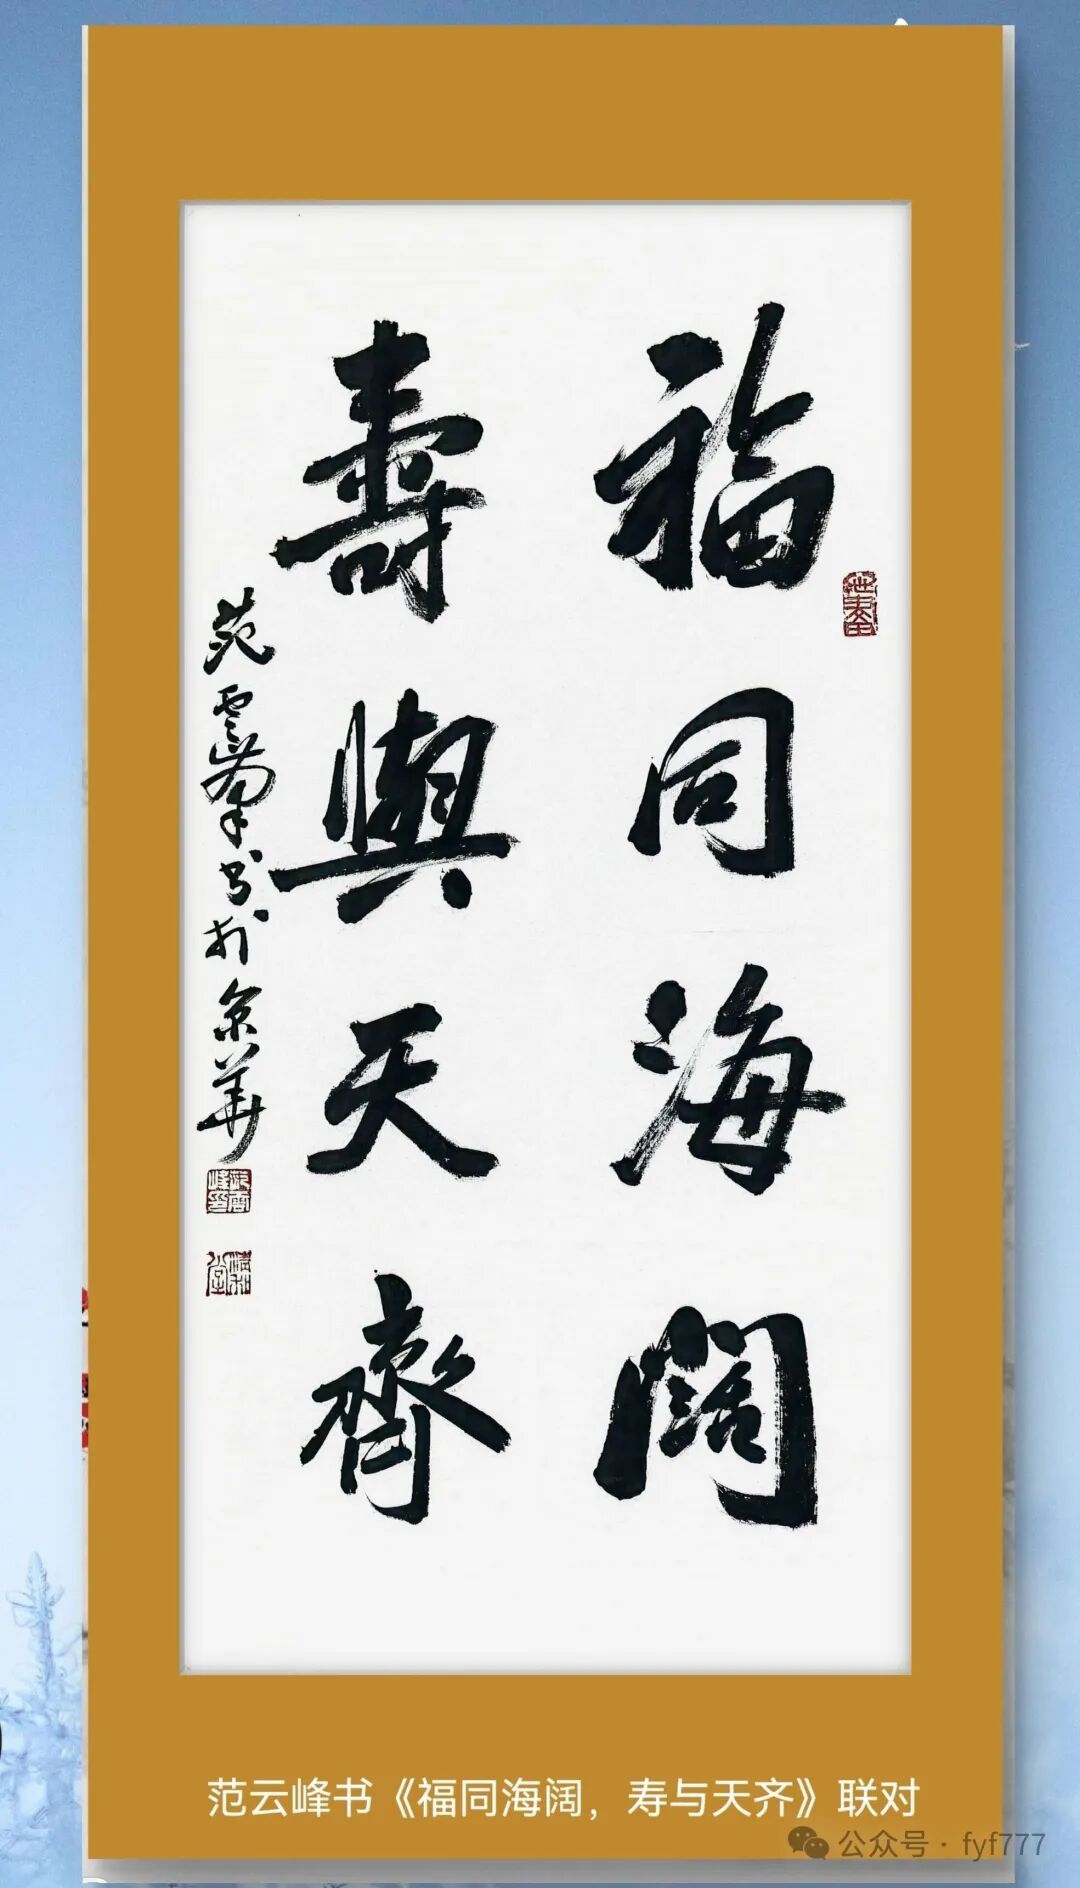 福同海闊
壽與天齊
范雲峯书於京華
范云峰书《福同海阔，寿与天齐》联对
公众号·fyf777